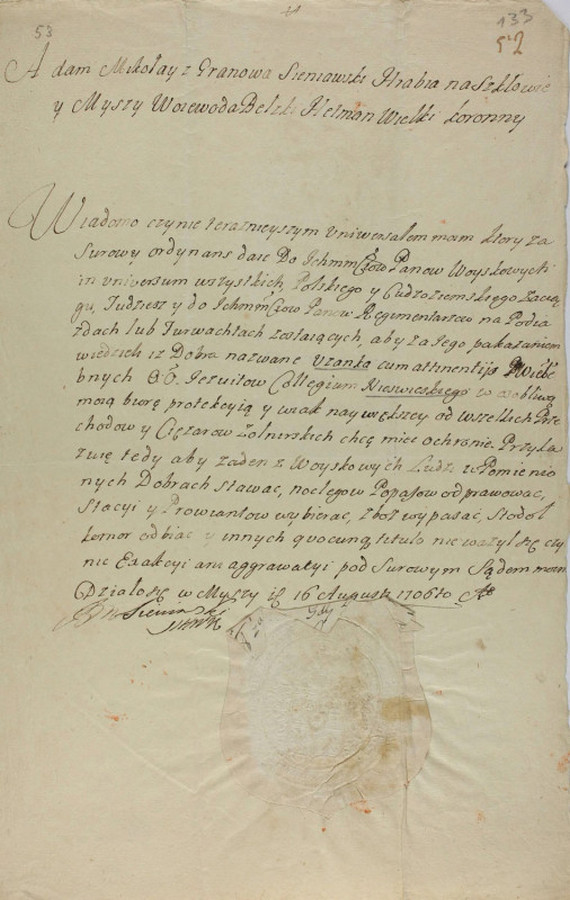 53
133
52
Adam Mikołay z Granowa Sieniawski Hrabia na Szkłowie
y Myszy Woiewoda Belzki Hetman Wielki Koronny
Wiadomo czynię teraznieyszym Vniwersałem moim ktory za
Surowy ordynans daię Do Ichmm Panow Woyskowych
in vniversum wszystkich, Polskiego y Cudzoziemskiego Zacią
gu, Tudziesz y do Ichmm Panow Regimentarzow na Podia
zdach lub Turwachtach zostaiących, aby za Iego pokazaniem
wiedzieli iż Dobra nazwane Vzanka cum attinentijs Wiele
bnych OO. Iezuitow Collegium Nieswieskiego w osobliwą
moią biorę protekcyią y wiak naywiększey od wszelkich Prze
chodow y Ciężarow Zołnirskich chcę miec ochronie. Przyka
zuię tedy aby zaden z Woyskowych Ludzi w Pomienio
nych Dobrach stawac, noclegow Popasow odprawowac,
Stacyi y Prowiantow wybierac, zboż wypasac, Stodoł
komor odbiac y innych quocunq titulo nie ważył się czy
nic Exakcyi ani aggrawatyi pod Surowym Sądem moim
Działo się w Myszy 16 Augusti 1706to